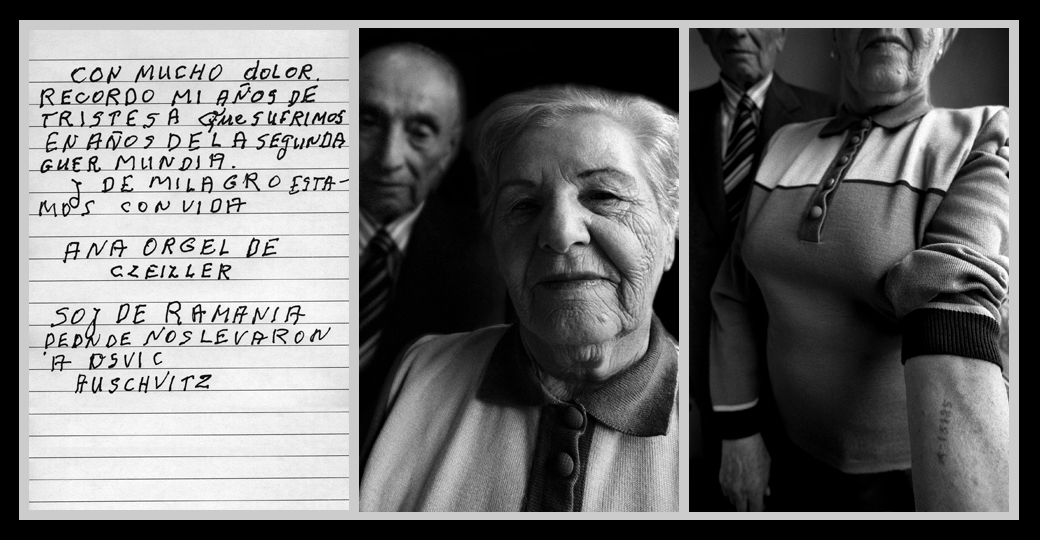 CON MUCHO dOLOR.
RECORDO MI AÑOS DE
TRISTESA que SUFRIMOS
EN AÑOS DE LA SEGUNDA
GUER MUNDIA.
y DE MILAGRO ESTA-
MOS CON VIDA
ANA ORGEL DE
CZEIZLER
SOy DE RAMANIA
DEDNDE NOS LEVARON
A OSVIC
AUSCHVITZ